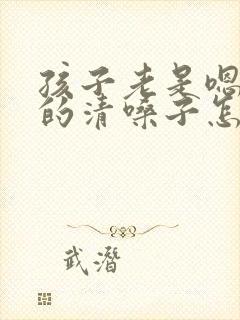 孩子老是嗯
的清嗓子怎
武潛